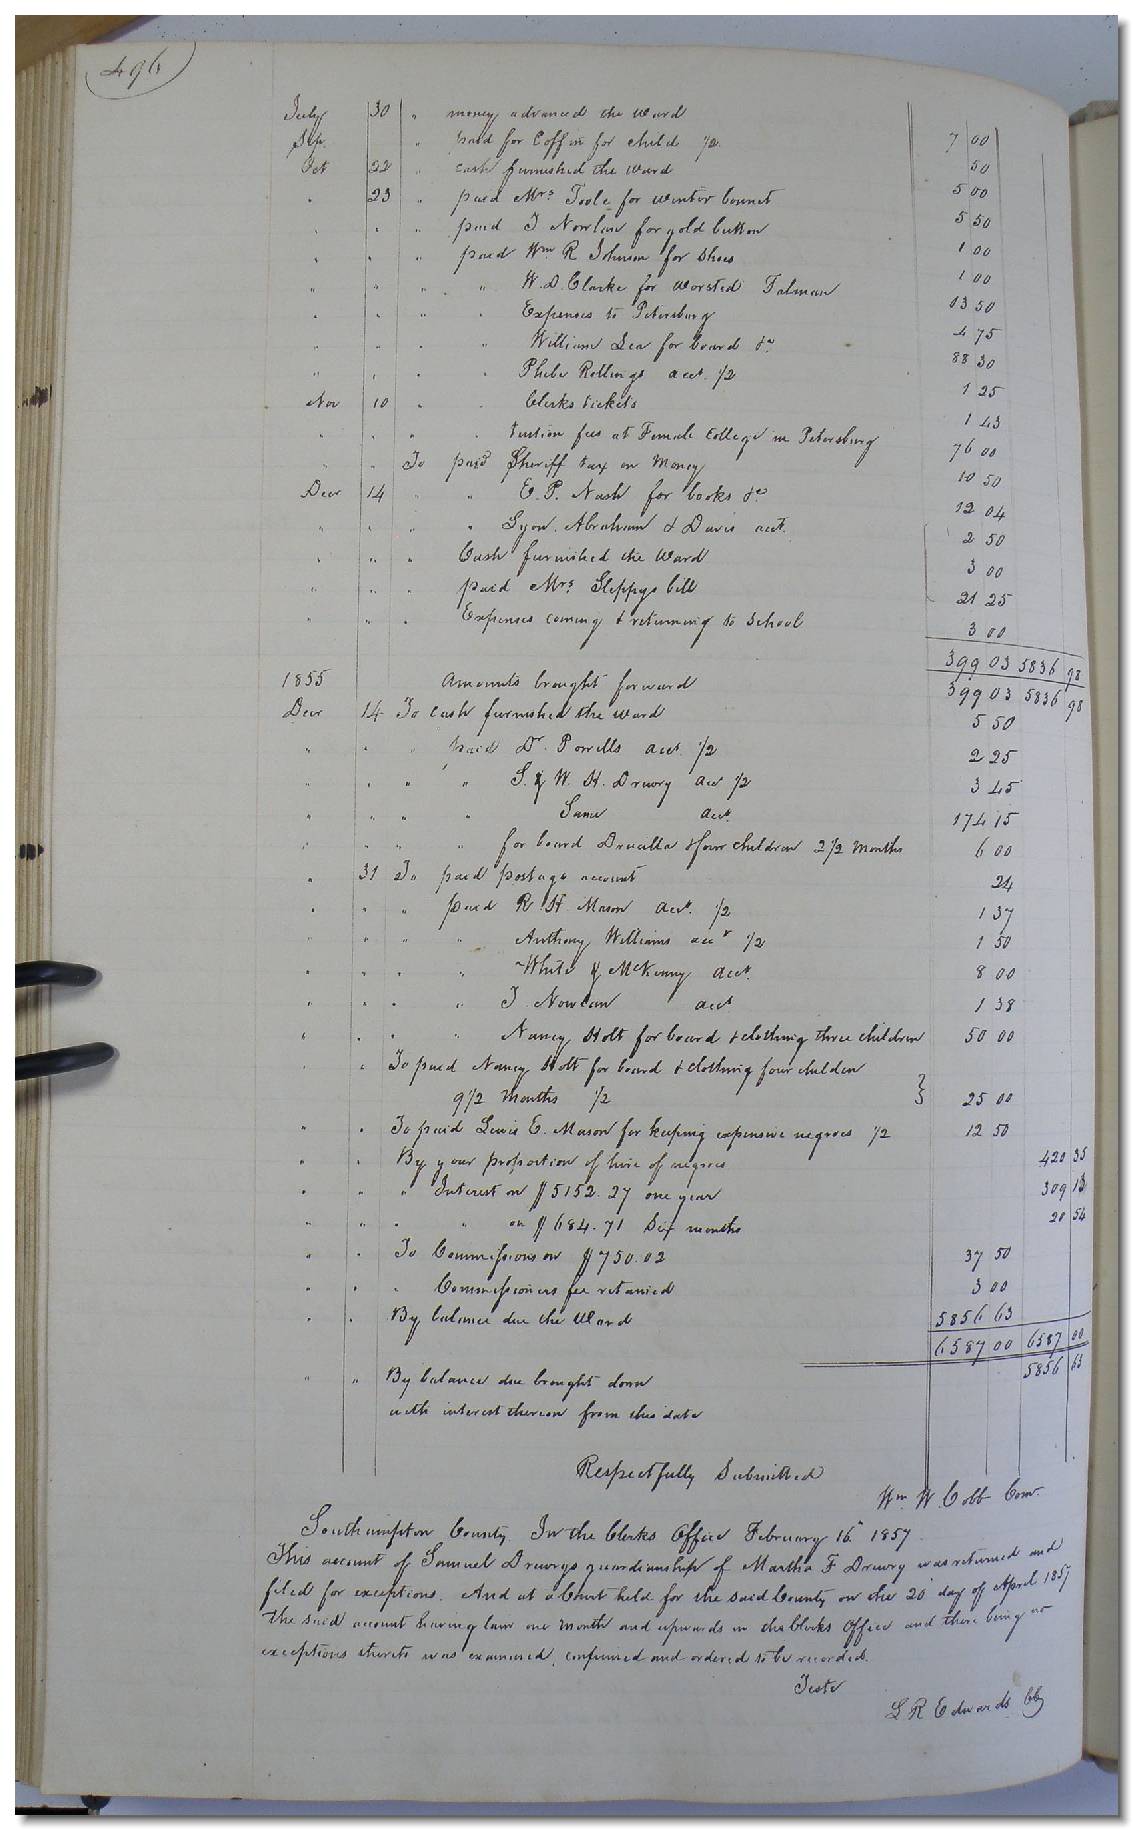 496
July 30 " money advanced the Ward 7 00
Sep. " paid for Coffin for child 1/2 50
Oct 22 " cash furnished the Ward 5 00
" 23 " paid Mrs. Toole for winter bonnet 5 50
" " " paid J Nowlan for gold button 1 00
" " " paid Wm R Johnson for Shoes 1 00
" " " " W. D. Clarke for worsted Talman 03 50
" " " " Expenses to Petersburg 4 75
" " " " William Lea for board &c 88 30
" " " " Phebe Rollings acct. 1/2 1 25
Nov 10 " " Clerks tickets 1 43
" " " " tuition fees at Female College in Petersburg 76 00
" " To paid Sheriff tax on Money 10 50
Decr 14 " " E. P. Nash for books &c 12 04
" " " " Lyon. Abraham & Davis acct. 2 50
" " " Cash furnished the Ward 3 00
" " " paid Mrs. Sleppys bill 21 25
" " " Expenses coming & returning to school 3 00
399 03 5836 98
1855 Amounts brought forward 399 03 5836 98
Decr 14 To cash furnished the ward 5 50
" " " paid Dr. Powells acct. 1/2 2 25
" " " " S. & W. H. Drewry acct 1/2 3 45
" " " " Same acct. 174 15
" " " " for board Drucilla & four children 2 1/2 Months 6 00
" 31 To paid postage account 24
" " " paid R. H. Mason acct. 1/2 1 37
" " " " Anthony Williams acct 1/2 1 50
" " " " White & McKenny acct. 8 00
" " " " J. Nowlan acct 1 38
" " " " Nancy Holt for board & clothing three children 50 00
" " To paid Nancy Holt for board & clothing four children
9 1/2 Months 1/2 } 25 00
" " To paid Lewis E. Mason for keeping expensive negroes 1/2 12 50
" " By your proportion of hire of negroes 420 35
" " " Interest on $5152.27 one year 309 13
" " " " on $684.71 Six months 20 54
" " To Commissions on $750.02 37 50
" " " Commissioners fee retained 3 00
" " By balance due the Ward 5856 63
6587 00 6587 00
" " By balance due brought down 5856 63
with interest thereon from this date
Respectfully Submitted
Wm. W. Cobb Com.
Southampton County. In the Clerks Office February 16th 1857.
This account of Samuel Drewrys guardianship of Martha F Drewry was returned and
filed for exceptions. And at a Court held for the said County on the 20th day of April 1857
the said account having lain one Month and upwards in the Clerks Office and there being no
exceptions thereto was examined, confirmed and ordered to be recorded.
Teste
L R Edwards Clk